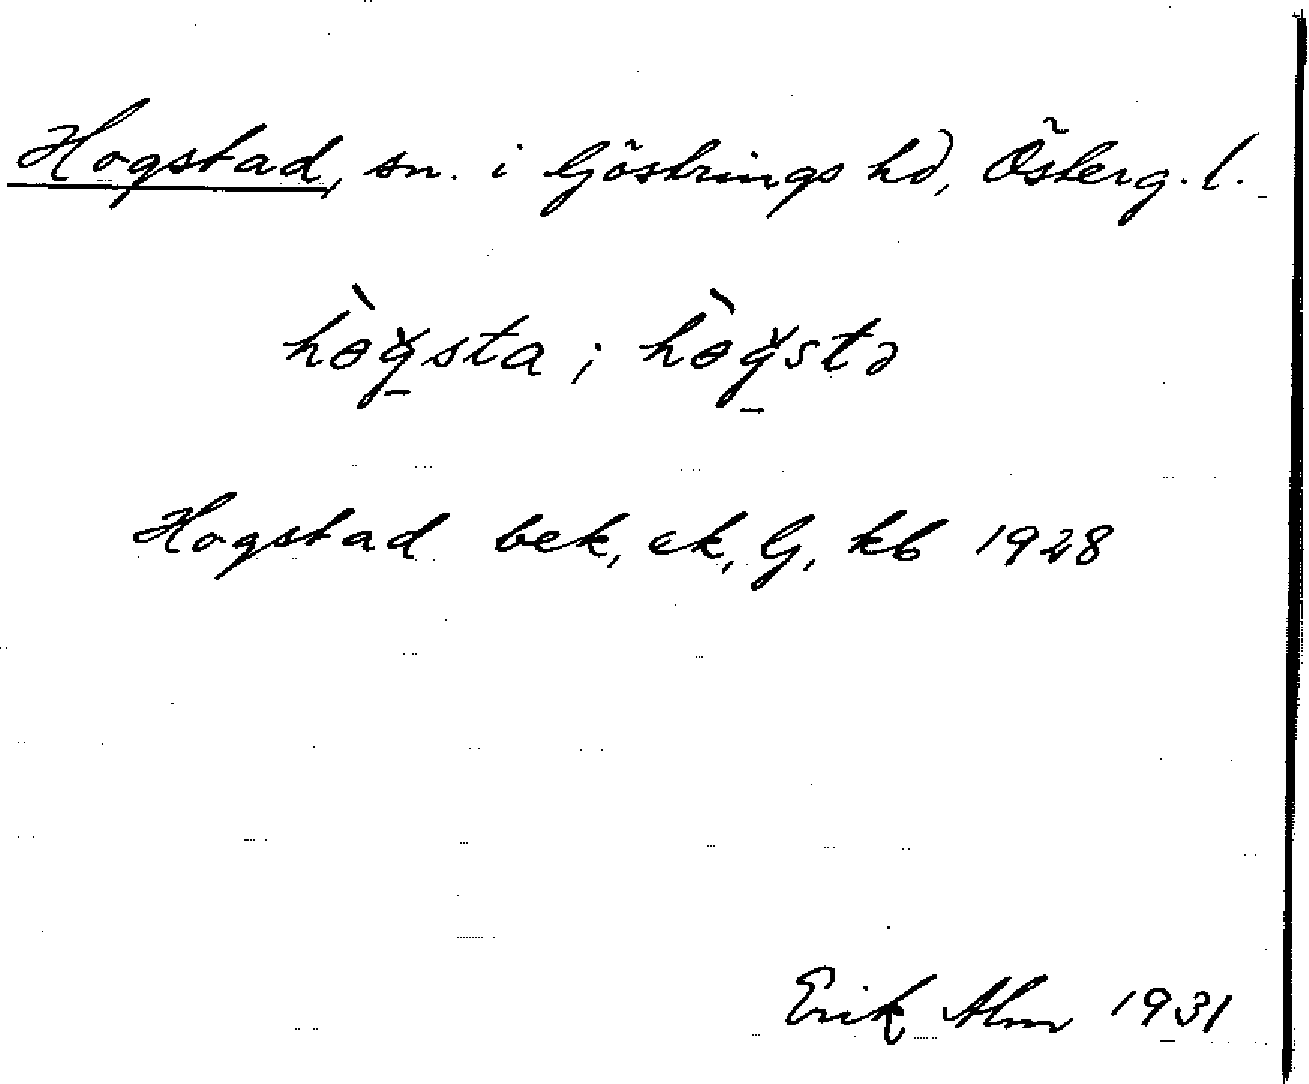 Hogstad, sn. i Göstrings hd, Österg. l.
hògsta ; hògstə
Hogstad bek, ek, G, kb 1928
Erik Alm 1931